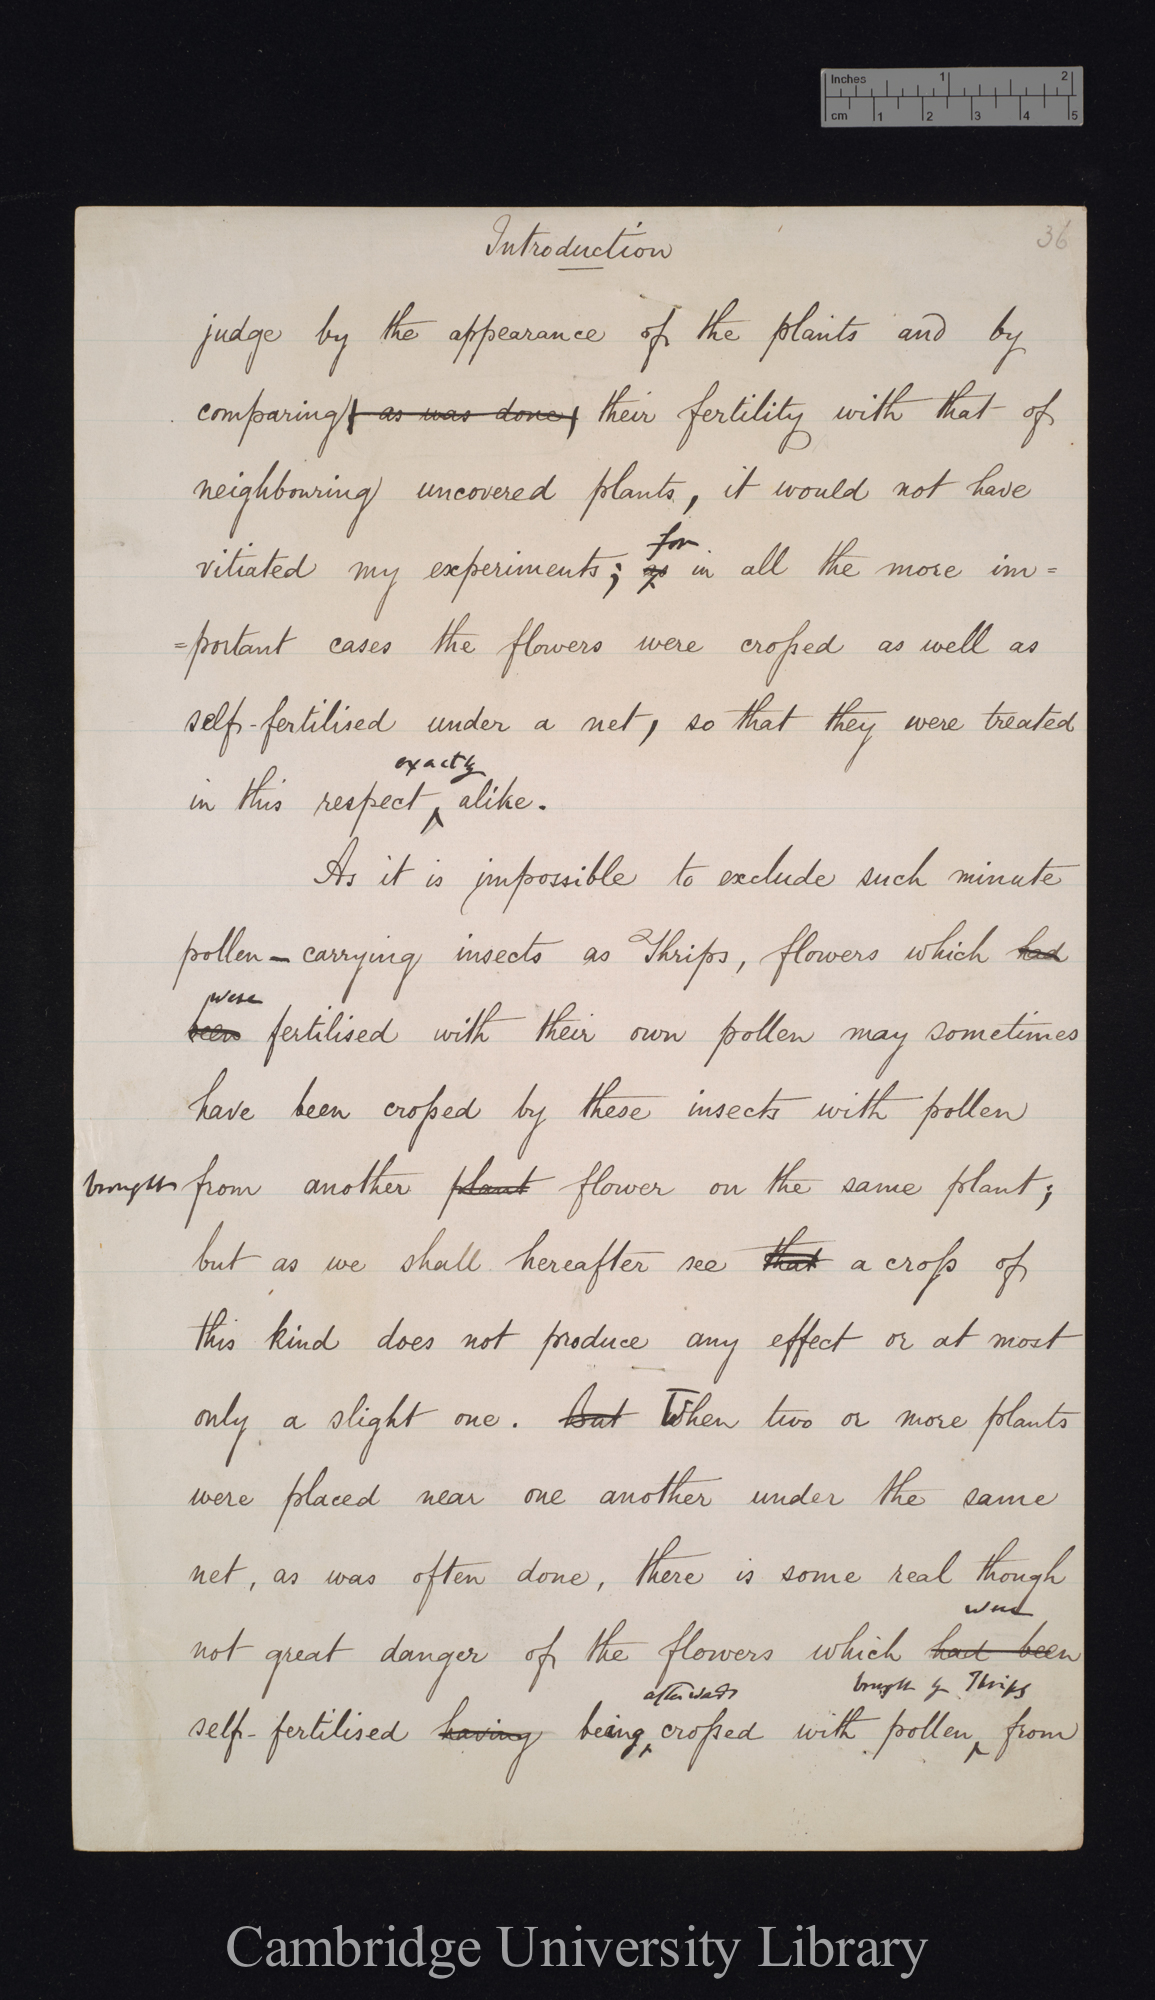 Inches 1 2
cm 1 2 3 4 5
Introduction 36
judge by the appearance of the plants and by
comparing, as was done, their fertility with that of
neighbouring uncovered plants, it would not have
for
vitiated my experiments; as in all the more im=
=portant cases the flowers were crossed as well as
self-fertilised under a net, so that they were treated
exactly
in this respect alike.
As it is impossible to exclude such minute
pollen-carrying insects as Thrips, flowers which had
were
been fertilised with their own pollen may sometimes
have been crossed by these insects with pollen
brought from another plant flower on the same plant;
but as we shall hereafter see that a cross of
this kind does not produce any effect or at most
only a slight one. But When two or more plants
were placed near one another under the same
net, as was often done, there is some real though
were
not great danger of the flowers which had been
afterwards brought by Thrips
self-fertilised having being crossed with pollen from
Cambridge University Library